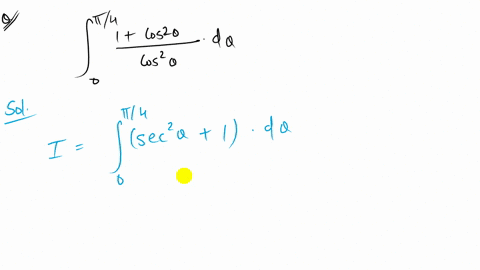 Q ∫₀^{π/4} (1 + cos2θ)/(cos²θ) · dθ
Sol.
I = ∫₀^{π/4} (sec²θ + 1) · dθ